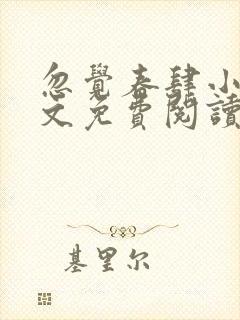 忽覺春肆小
文免費閱讀
基里尔